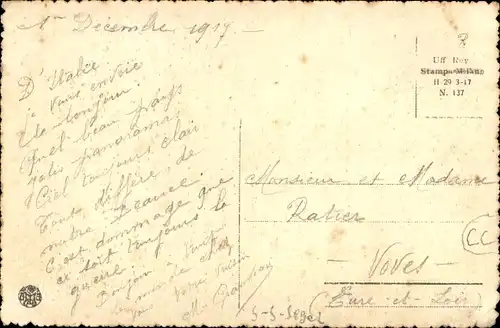 1er Décembre 1917.-
D'Italie
je vous envoie
le bonjour.
Quel beau pays
jolis panoramas,
Ciel toujours clair
Tout diffère de
notre Beauce.
C'est dommage que
ce soit toujours la
guerre.
Bonjour à
votre
Uff Rev
Stampa Milano
II 29 3-17
N. 137
Monsieur et Madame
Ratier
Voves
(Eure-et-Loir)
CC